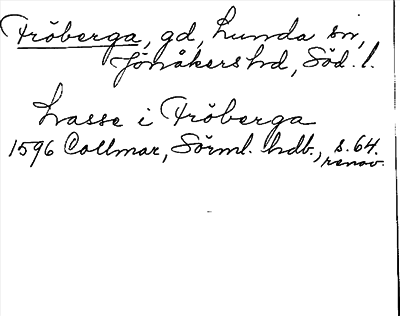 Fröberga, gd, Lunda sn,
Jönåkers hd, Söd. l.
Lasse i Fröberga
1596 Collmar, Sörml. hdb., s. 64.
renov.